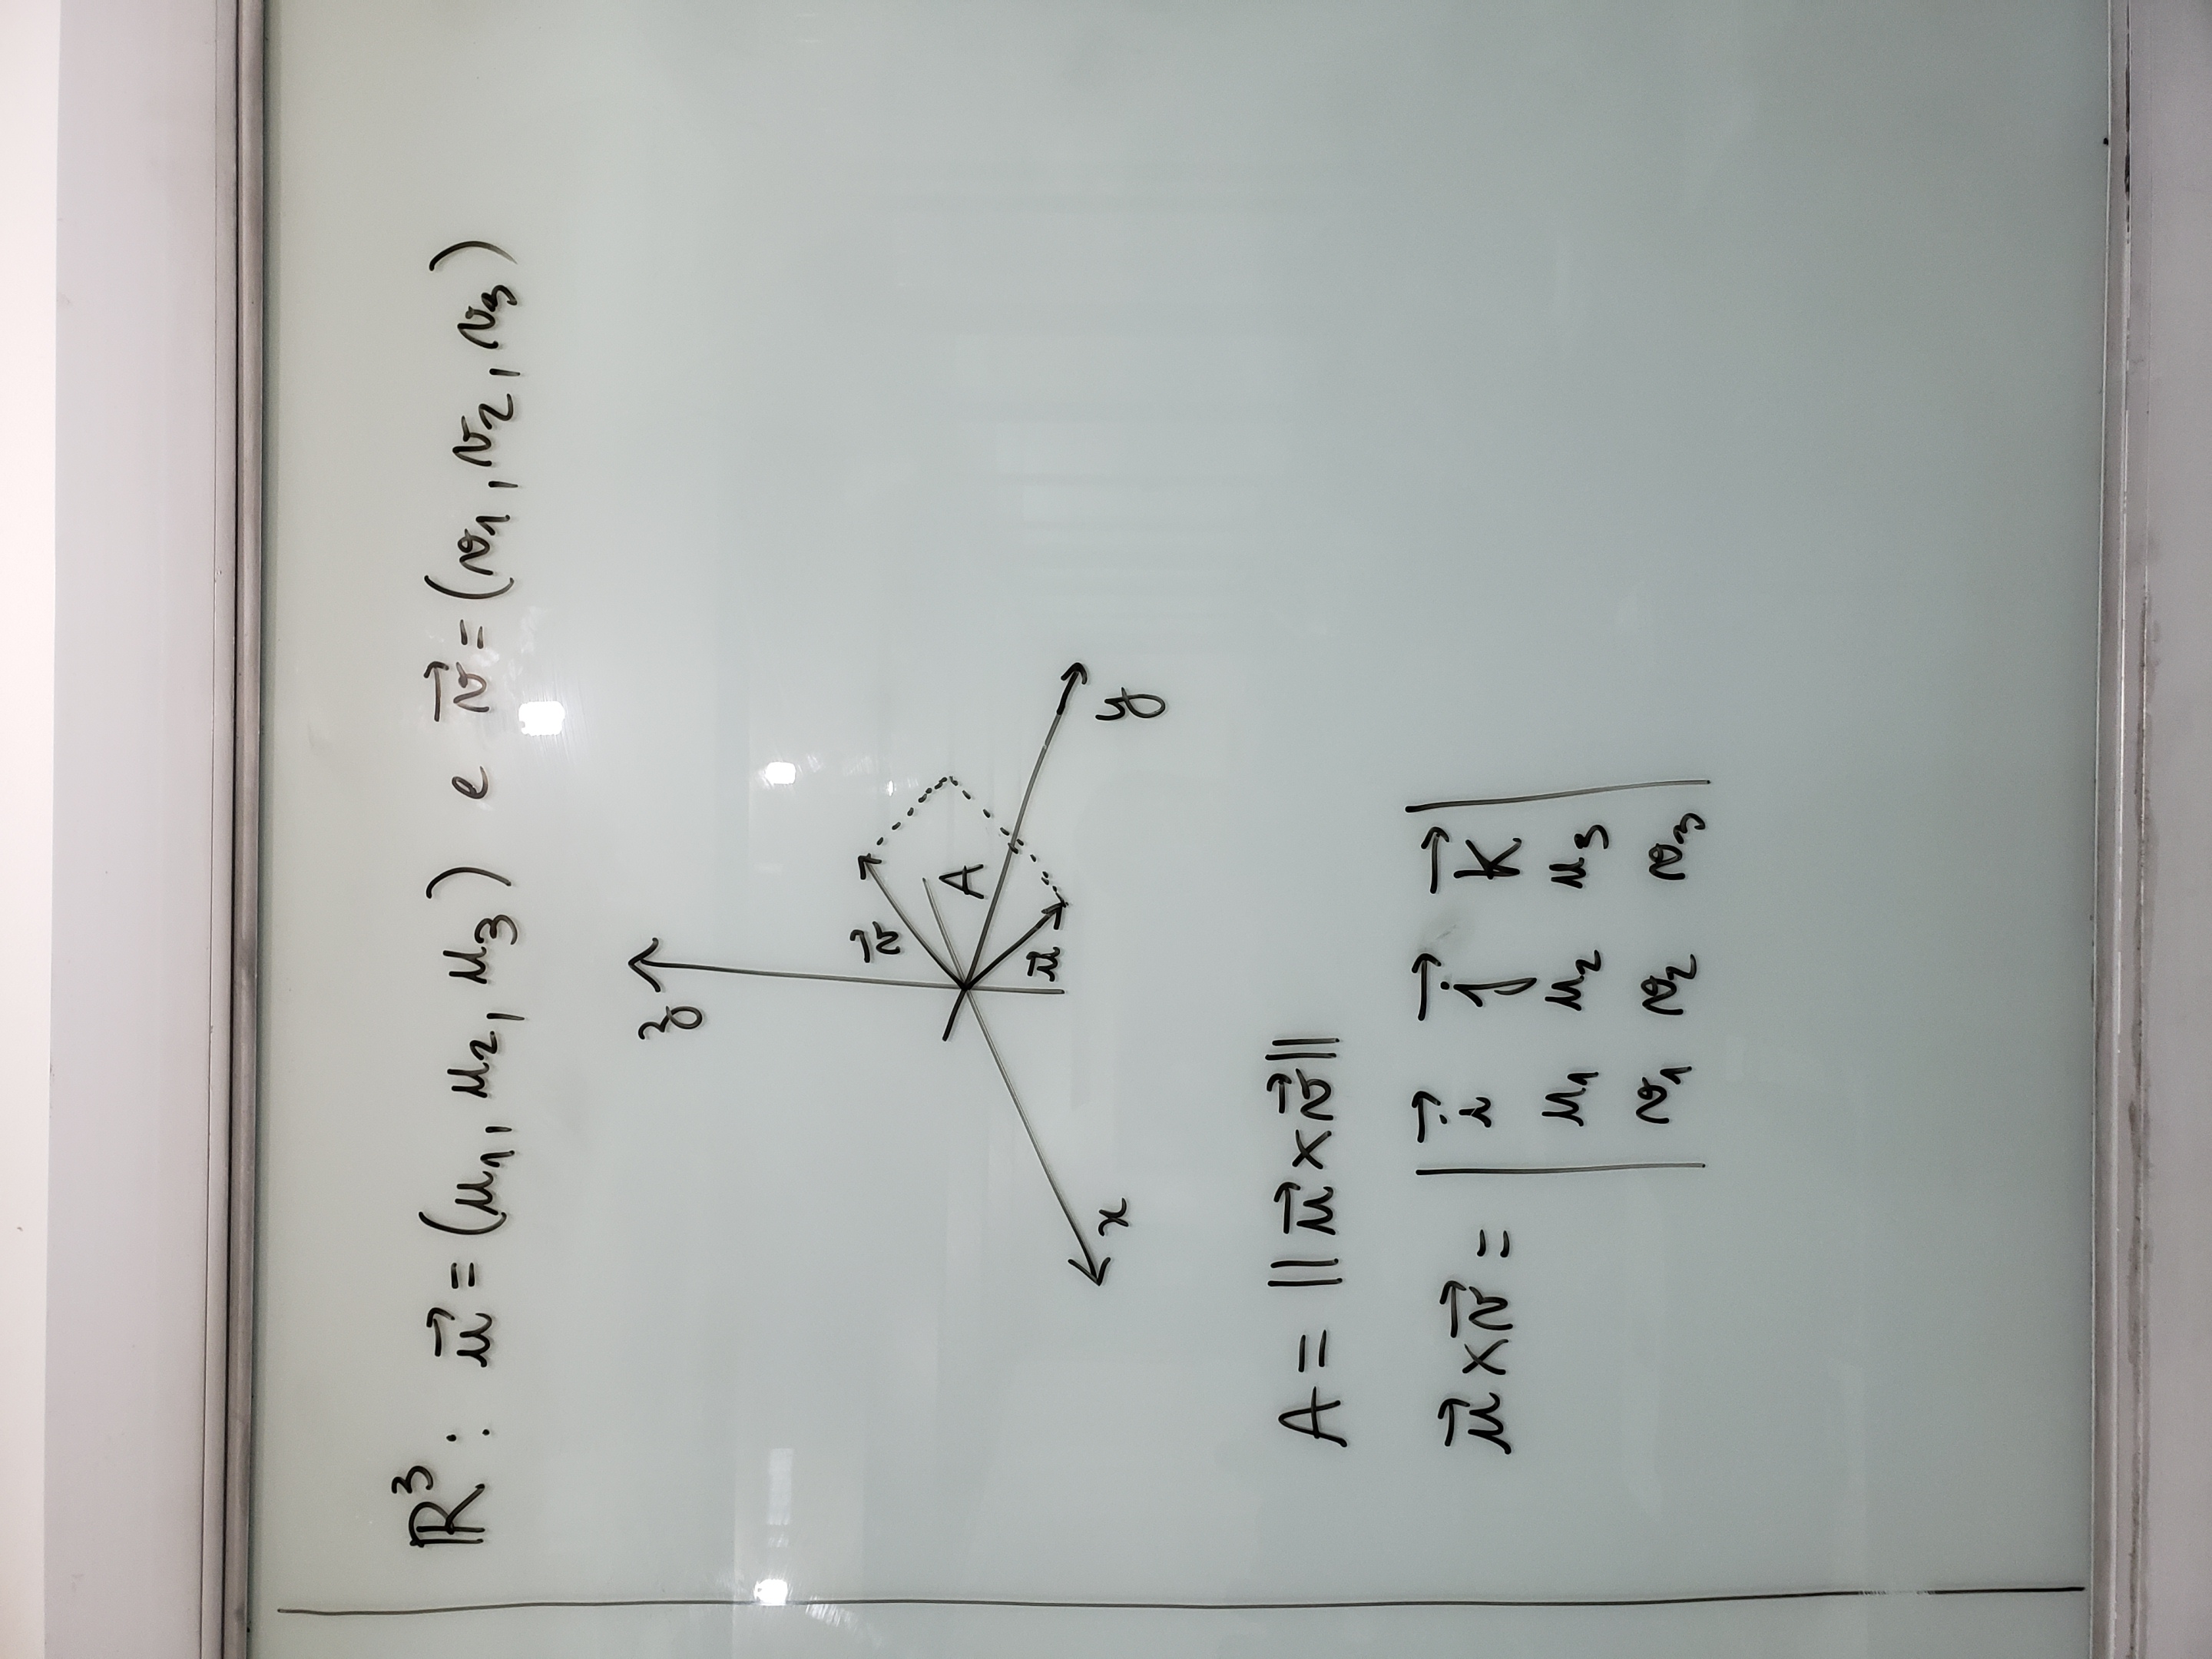 ℝ³: u⃗ = (u₁, u₂, u₃) e v⃗ = (v₁, v₂, v₃)
z
v⃗
A
u⃗
x
y
A = ‖u⃗ × v⃗‖
u⃗ × v⃗ = | i⃗ j⃗ k⃗ |
| u₁ u₂ u₃ |
| v₁ v₂ v₃ |